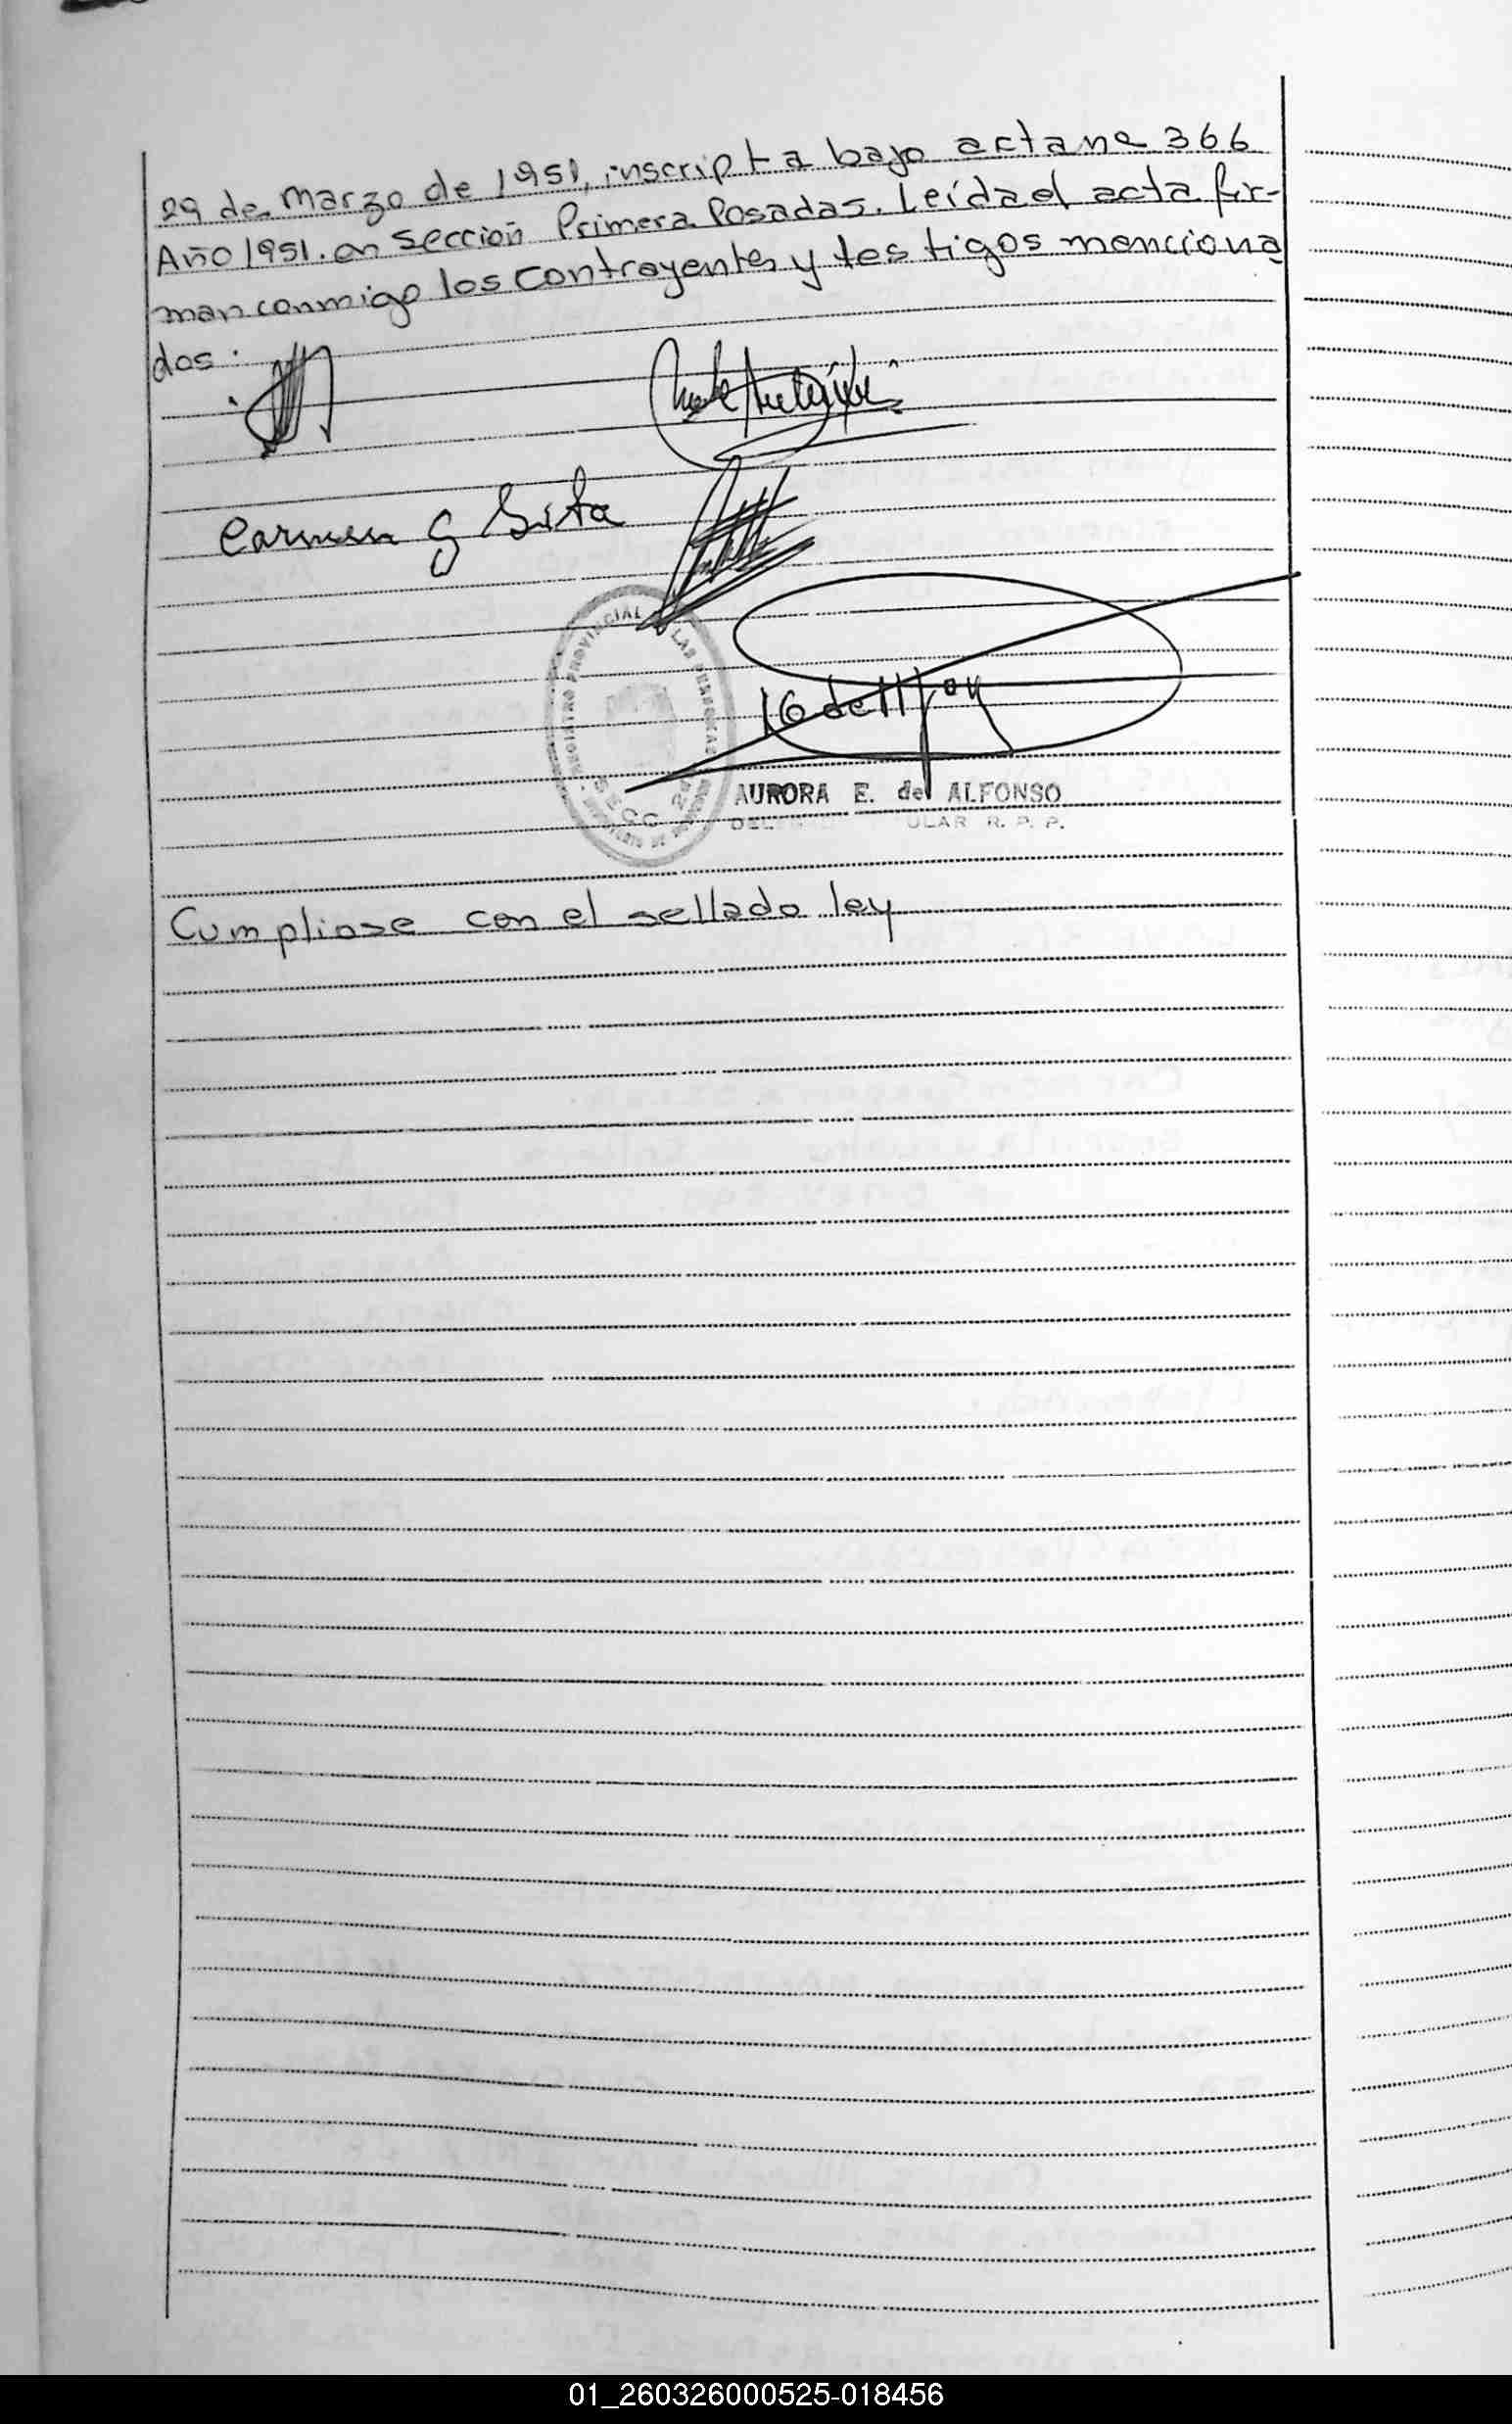 29 de Marzo de 1951, inscripta bajo acta no 366
Año 1951. en Sección Primera Posadas. Leída el acta fir-
man conmigo los contrayentes y testigos menciona
dos:
Carmen G
REGISTRO PROVINCIAL LAS PERSONAS
SECC
AURORA E. de ALFONSO
R. P. P.
Cumpliose con el sellado ley
01_260326000525-018456